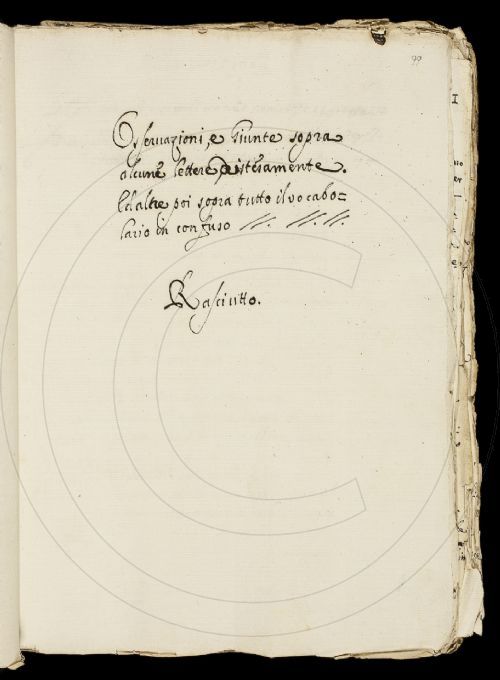 99
Osservazioni, e Giunte sopra
alcune lettere distesamente.
Ed altre poi sopra tutto il vocabo=
lario in confuso
Rasciutto.